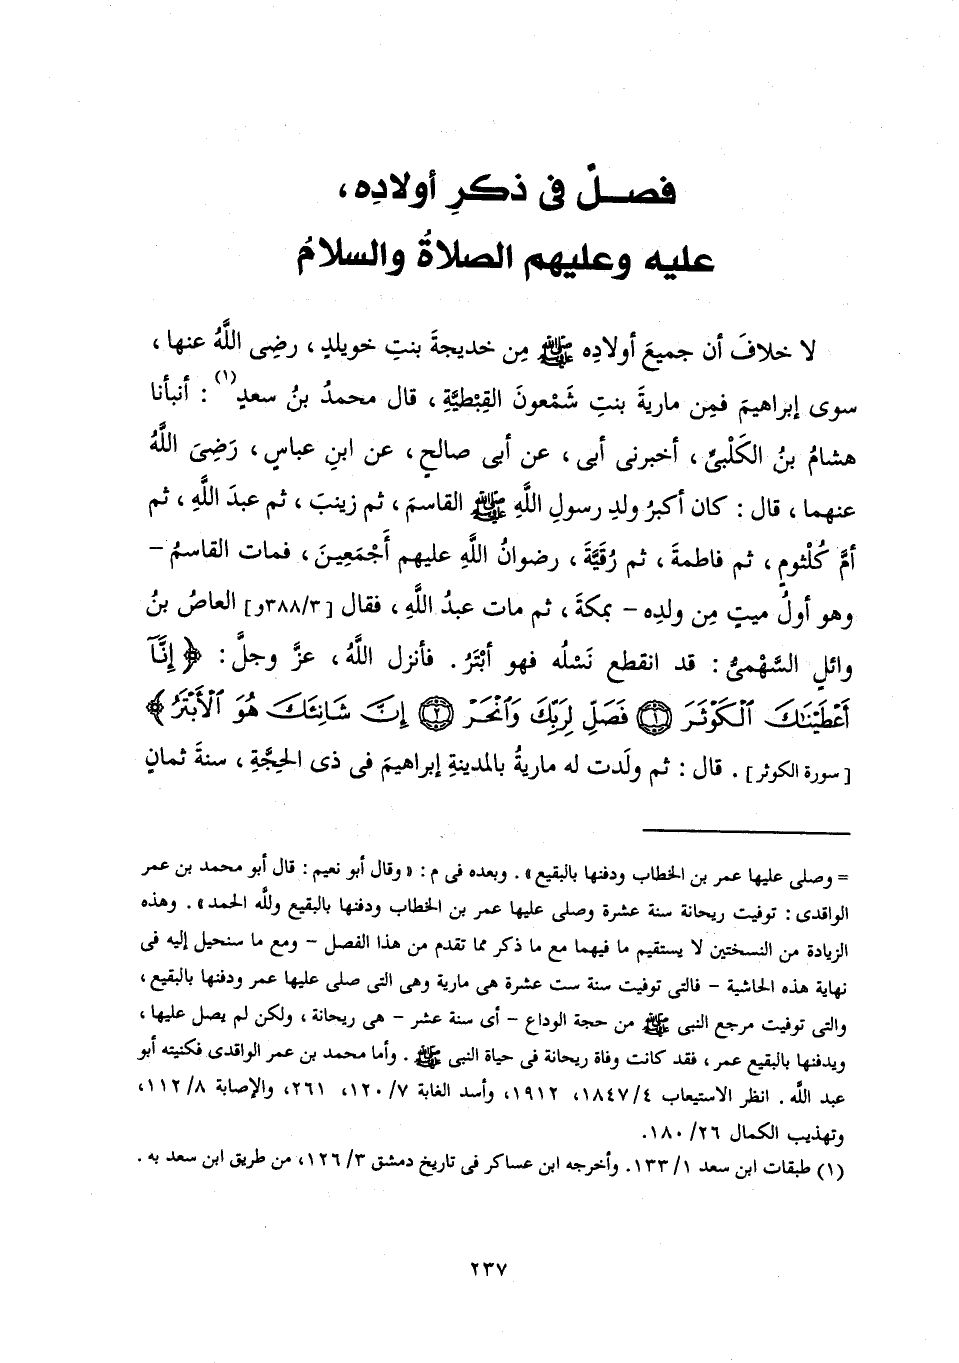 فصلٌ فى ذكرِ أولادِه،
عليه وعليهم الصلاةُ والسلامُ
لا خلافَ أن جميعَ أولادِه ﷺ مِن خديجةَ بنتِ خويلدٍ، رضِى اللَّهُ عنها،
سوى إبراهيمَ فمِن ماريةَ بنتِ شَمْعونَ القِبْطيَّةِ، قال محمدُ بنُ سعدٍ(١): أنبأنا
هشامُ بنُ الكَلْبىِّ، أخبرنى أبى، عن أبى صالحٍ، عن ابنِ عباسٍ، رَضِىَ اللَّهُ
عنهما، قال: كان أكبرُ ولدِ رسولِ اللَّهِ ﷺ القاسمَ، ثم زينبَ، ثم عبدَ اللَّهِ، ثم
أمَّ كُلْثومٍ، ثم فاطمةَ، ثم رُقَيَّةَ، رضوانُ اللَّهِ عليهم أَجْمَعِينَ، فمات القاسمُ –
وهو أولُ ميتٍ مِن ولدِه – بمكةَ، ثم مات عبدُ اللَّهِ، فقال [٣/٣٨٨و] العاصُ بنُ
وائلٍ السَّهْمىُّ: قد انقطع نَسْلُه فهو أبْتَرُ. فأنزل اللَّهُ، عزَّ وجلَّ: ﴿إِنَّآ
أَعْطَيْنَٰكَ ٱلْكَوْثَرَ ۝١ فَصَلِّ لِرَبِّكَ وَٱنْحَرْ ۝٢ إِنَّ شَانِئَكَ هُوَ ٱلْأَبْتَرُ﴾
[سورة الكوثر]. قال: ثم ولَدت له ماريةُ بالمدينةِ إبراهيمَ فى ذى الحِجَّةِ، سنةَ ثمانٍ
= وصلى عليها عمر بن الخطاب ودفنها بالبقيع». وبعده فى م: «وقال أبو نعيم: قال أبو محمد بن عمر
الواقدى: توفيت ريحانة سنة عشرة وصلى عليها عمر بن الخطاب ودفنها بالبقيع وللَّه الحمد». وهذه
الزيادة من النسختين لا يستقيم ما فيهما مع ما ذكر مما تقدم من هذا الفصل – ومع ما سنحيل إليه فى
نهاية هذه الحاشية – فالتى توفيت سنة ست عشرة هى مارية وهى التى صلى عليها عمر ودفنها بالبقيع،
والتى توفيت مرجع النبى ﷺ من حجة الوداع – أى سنة عشر – هى ريحانة، ولكن لم يصل عليها،
ويدفنها بالبقيع عمر، فقد كانت وفاة ريحانة فى حياة النبى ﷺ. وأما محمد بن عمر الواقدى فكنيته أبو
عبد اللَّه. انظر الاستيعاب ٤/١٨٤٧، ١٩١٢، وأسد الغابة ٧/١٢٠، ٢٦١، والإصابة ٨/١١٢،
وتهذيب الكمال ٢٦/١٨٠.
(١) طبقات ابن سعد ١/١٣٣. وأخرجه ابن عساكر فى تاريخ دمشق ٣/١٢٦، من طريق ابن سعد به.
٢٣٧